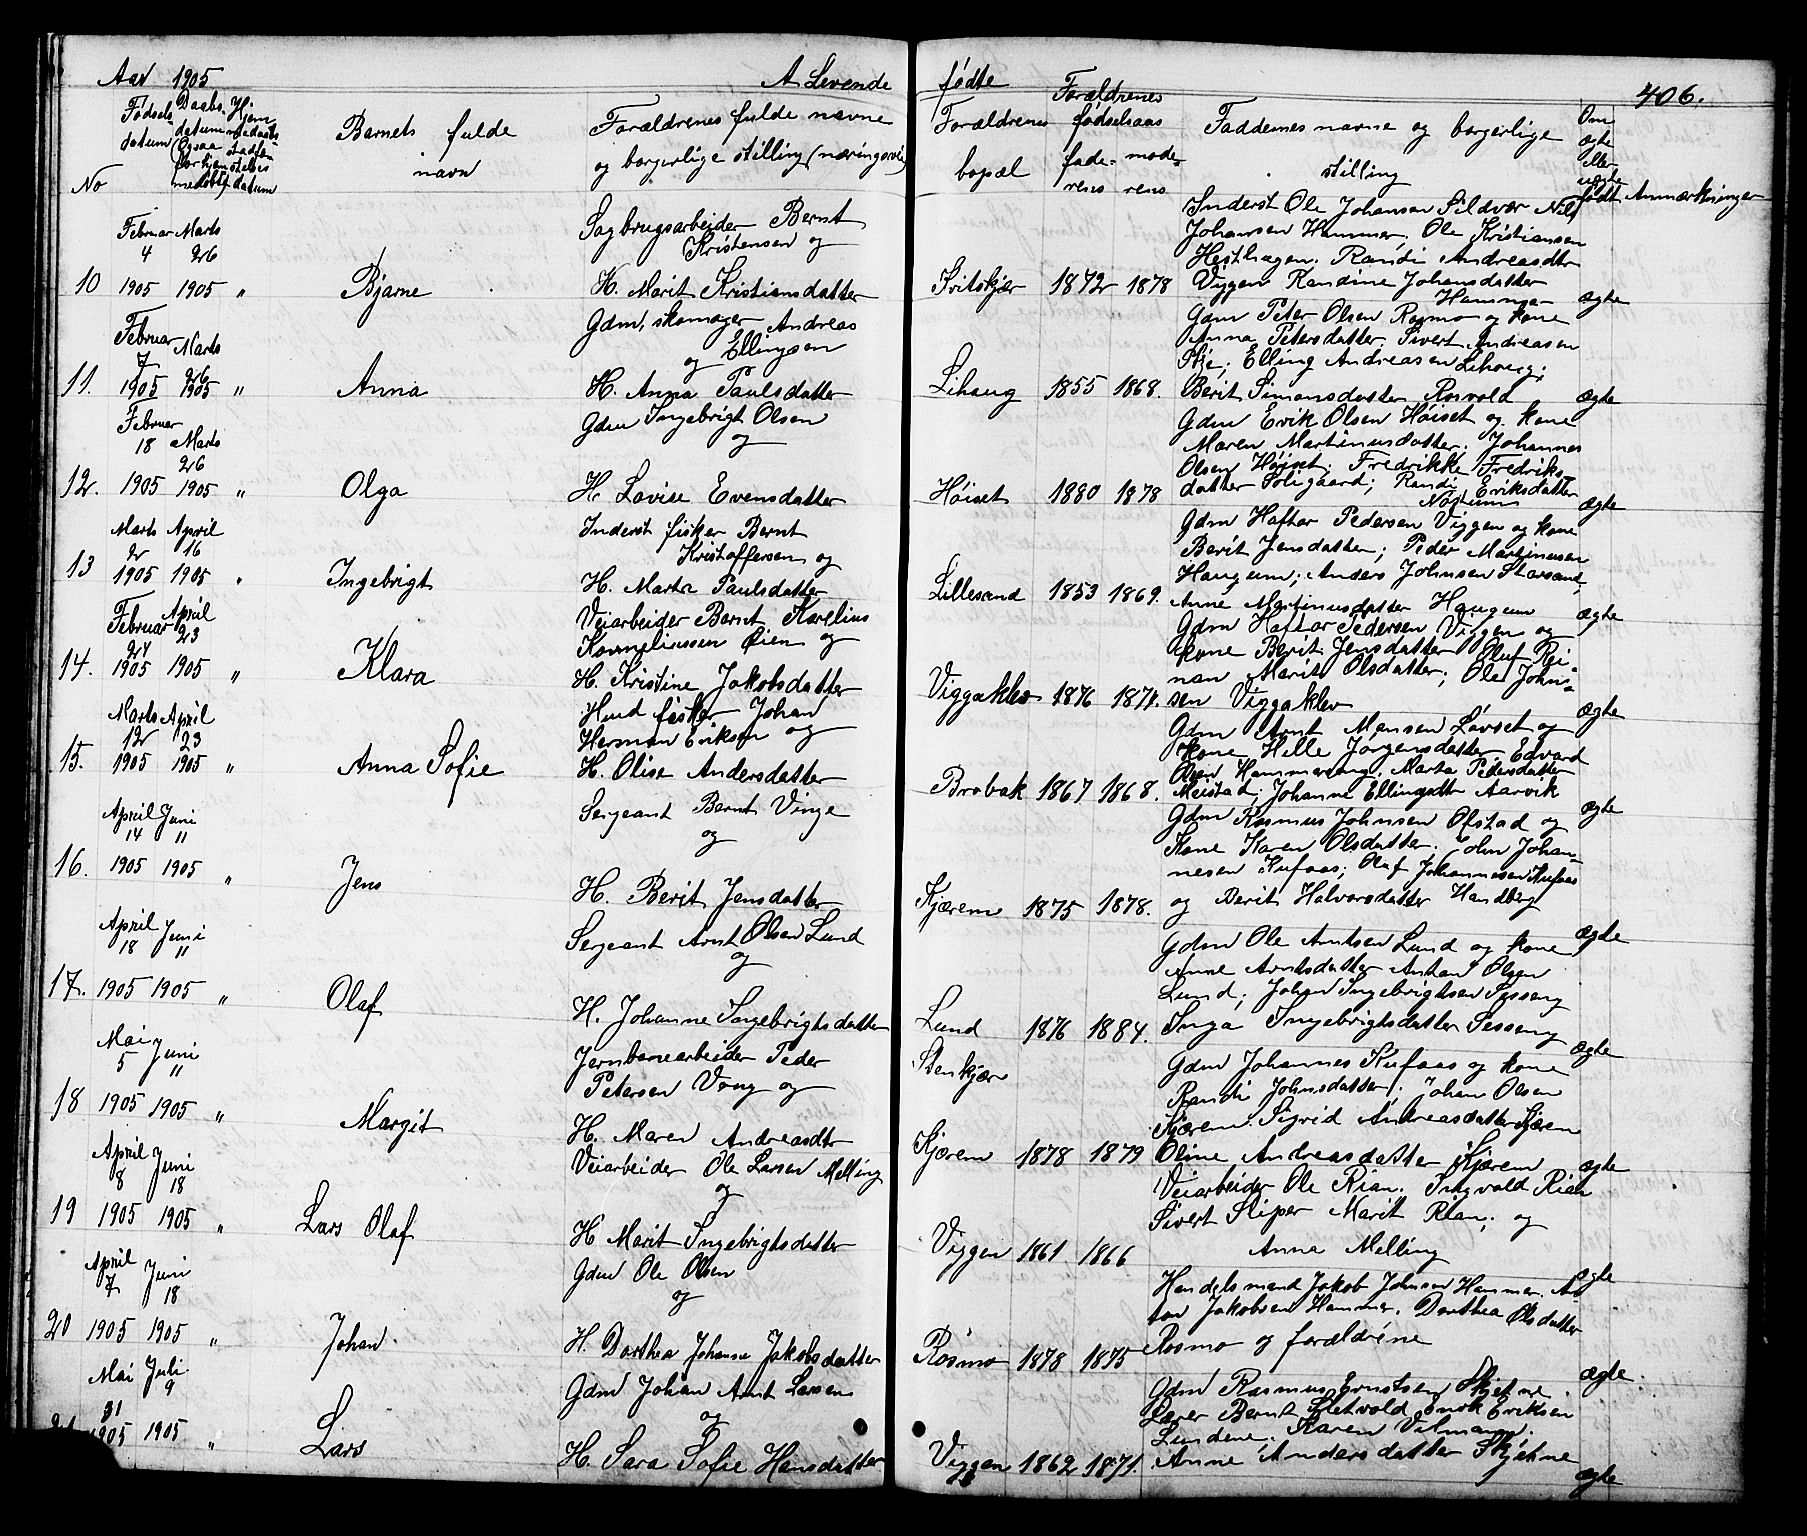 Aar 1905 A Levende fødte 406.
No
Fødsels datum
Daabs datum
Hjem
Barnets fulde navn
Forældrenes fulde navne og borgerlige stilling (næringsvei)
Forældrenes bopæl
Forældrenes fødselsaar
faderens moderens
Faddernes navne og borgerlige stilling
Om ægte eller uægte født
Anmærkninger
Februar 4 Marts 26
10 1905 1905 "
Bjarne
Sagbrugsarbeider Bernt
Kristensen og
H. Marit Kristiansdatter
Svitskjær 1872 1878
Inderst Ole Johansen Sildvær Nils
Johansen Hammer, Ole Kristiansen
Hesthagen. Randi Andreasdtr
Viggen Randine Johansdatter
Hammer
ægte
Februar 7 Marts 26
11. 1905 1905 "
Anna
Gdm, skomager Andreas
og Ellingsen
H. Anna Paulsdatter
Lihaug 1855 1868.
Gdm Peter Olsen Rosmo og kone
Anna Petersdatter, Sivert Andreasen
Skje; Elling Andreasen Lihaug;
Berit Simonsdatter Rosvold
ægte
Februar 18 Marts 26
12. 1905 1905 "
Olga
Gdm Ingebrigt Olsen
og
H. Lovise Evensdatter
Høiset 1880 1878
Gdm Erik Olsen Høiset og kone
Maren Martinusdatter. Johannes
Olsen Høiset. Fredrikke Fredriks-
datter Soligaard; Randi Eriksdatter
ægte
Marts 2 April 16
13 1905 1905 "
Ingebrigt
Inderst fisker Bernt
Kristoffersen og
H. Marta Paulsdatter
Lillesand 1853 1869.
Gdm Haftor Pedersen Viggen og kone
Berit Jensdatter; Peder Martinusen
Haugum; Anders Johnsen Storsand,
Anne Martinusdatter Haugum
ægte
Februar 24 April 23
14. 1905 1905 "
Klara
Veiarbeider Bernt Karelius
Korneliussen Øien og
H. Kristine Jakobsdatter
Viggaklev 1876 1871.
Gdm Haftor Pedersen Viggen og
kone Berit Jensdatter Oluf Rei-
nan Marit Olsdatter; Ole John-
sen Viggaklev
ægte
Marts 12 April 23
15. 1905 1905 "
Anna Sofie
Hmd fisker Johan
Herman Eriksen og
H. Olise Andersdatter
Brobak 1867 1868.
Gdm Arnt Monsen Løvset og
kone Helle Jørgensdatter, Edvard
Olsen Hammervang. Marta Pedersdatter
Meistad; Johanne Ellingsdtr Aarvik
ægte
April 14 Juni 11
16. 1905 1905 "
Jens
Sergeant Bernt Vinge
og
H. Berit Jensdatter
Kjærem 1875 1878.
Gdm Rasmus Johnsen Ofstad og
Kone Karen Olsdatter. John Johan-
nesen Kufaas; Olaf Johannesen Kufaas
og Berit Halvorsdatter Handberg
ægte
April 18 Juni 11
17. 1905 1905 "
Olaf
Sergeant Arnt Olsen Lund
og
H. Johanne Ingebrigtsdatter
Lund 1876 1884.
Gdm Ole Arntsen Lund og kone
Anne Arntsdatter Anton Olsen
Lund; Johan Ingebrigtsen Sesseng
Inga Ingebrigtsdatter Sesseng
ægte
Mai 5 Juni 11
18 1905 1905 "
Margit
Jernbanearbeider Peder
Petersen Vong og
H. Maren Andreasdtr
Stenkjær
Kjærem 1878 1879
Gdm Johannes Kufaas og kone
Randi Johnsdatter; Johan Olsen
Kjærem. Sigrid Andreasdatter Kjærem
Oline Andreasdatter Kjærem
ægte
April 8 Juni 18
19 1905 1905 "
Lars Olaf
Veiarbeider Ole Larsen Melling
og
H Marit Ingebrigtsdatter
Viggen 1861 1866
Veiarbeider Ole Rian. Ingvald Rian
Sivert Sliper Marit Rian; og
Anna Melling
ægte
April 7 Juni 18
20 1905 1905 "
Johan
Gdm Ole Olsen
og
H. Dorthea Johanna Jakobsdatter
Rosmo 1878 1875
Handelsmand Jakob Johnsen Hammer.
Jakobsen Hammer. Dorthea Olsdatter
Rosmo og forældrene
ægte.
Mai 31 Juli 9
1905 1905 "
Lars
Gdm Johan Arnt Larsen
og
H. Sara Sofie Hansdatter
Viggen 1862 1871.
Gdm Rasmus Erntsen Skjetne
Lærer Bernt Sletvold Enok Eriksen
Lundene. Karen Vilmann.
Anne Andersdatter Skjetne
ægte